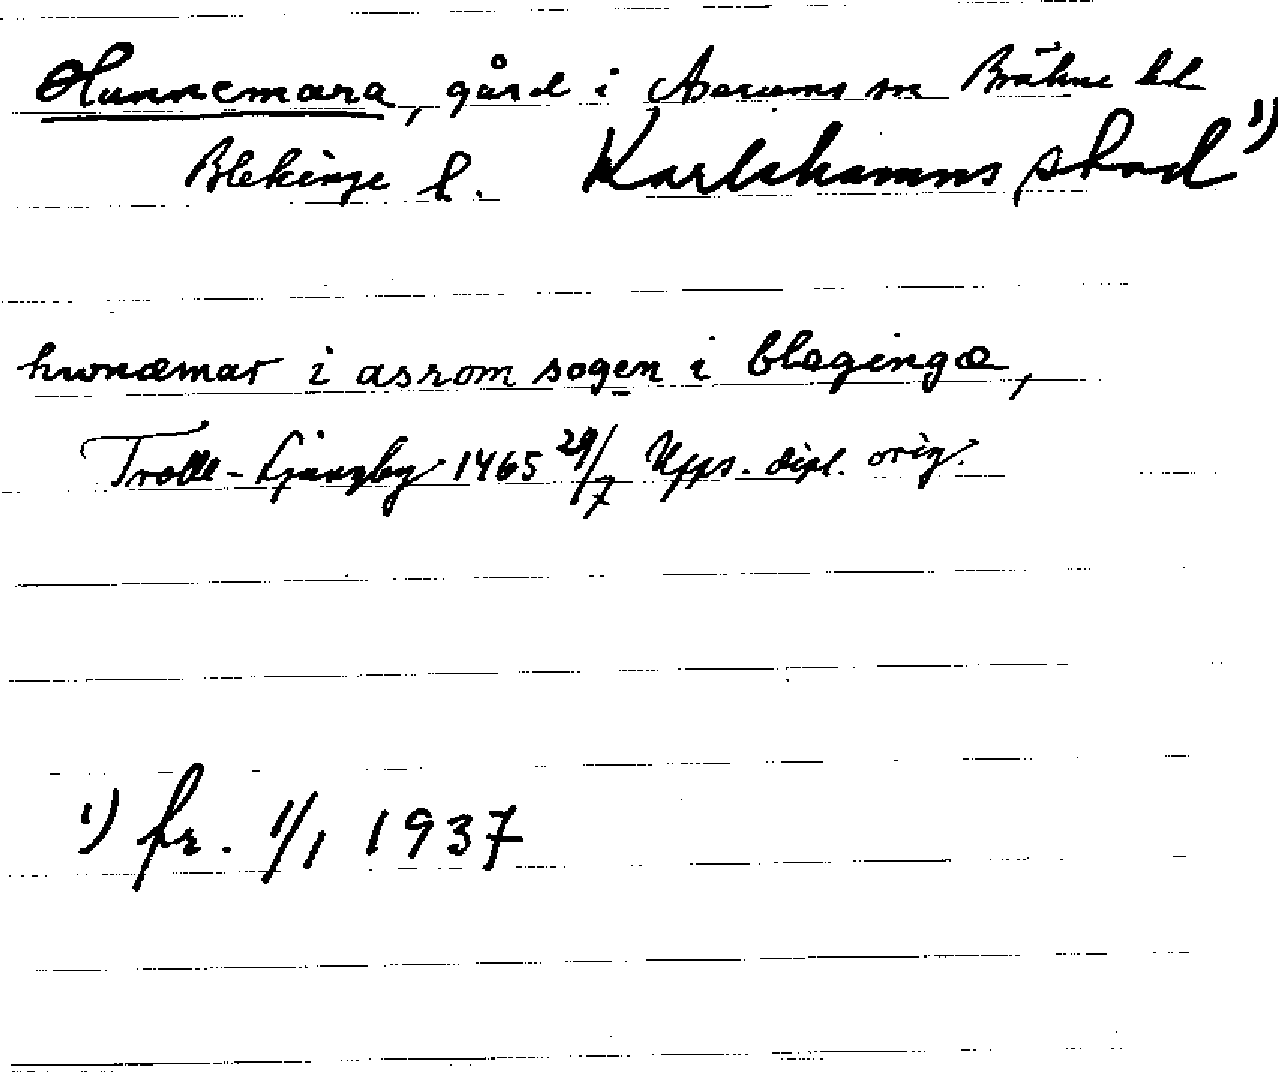 Hunnemara, gård i Asarums sn Bräkne hd
Blekinge l. Karlshamns stad 1)
hwnæmar i asrom sogen i blegingæ,
Trolle-Ljungby 1465 29/7 Upps. dipl. orig.
1) fr. 1/1 1937